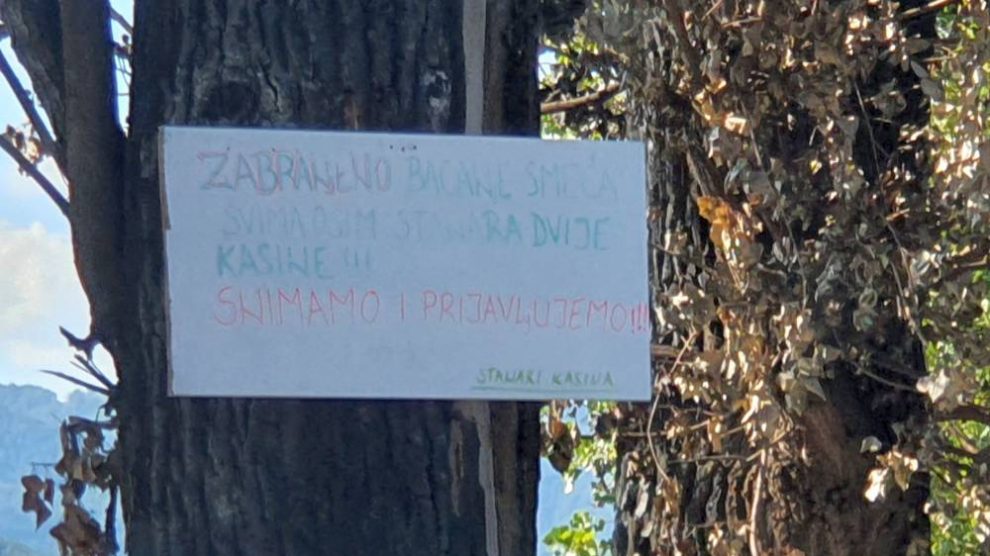 ZABRANENO BACANE SMEĆA
SVIMA OSIM STANARA DVIJE
KASINE !!!
SNIMAMO I PRIJAVLJUJEMO!!!
STANARI KASINA